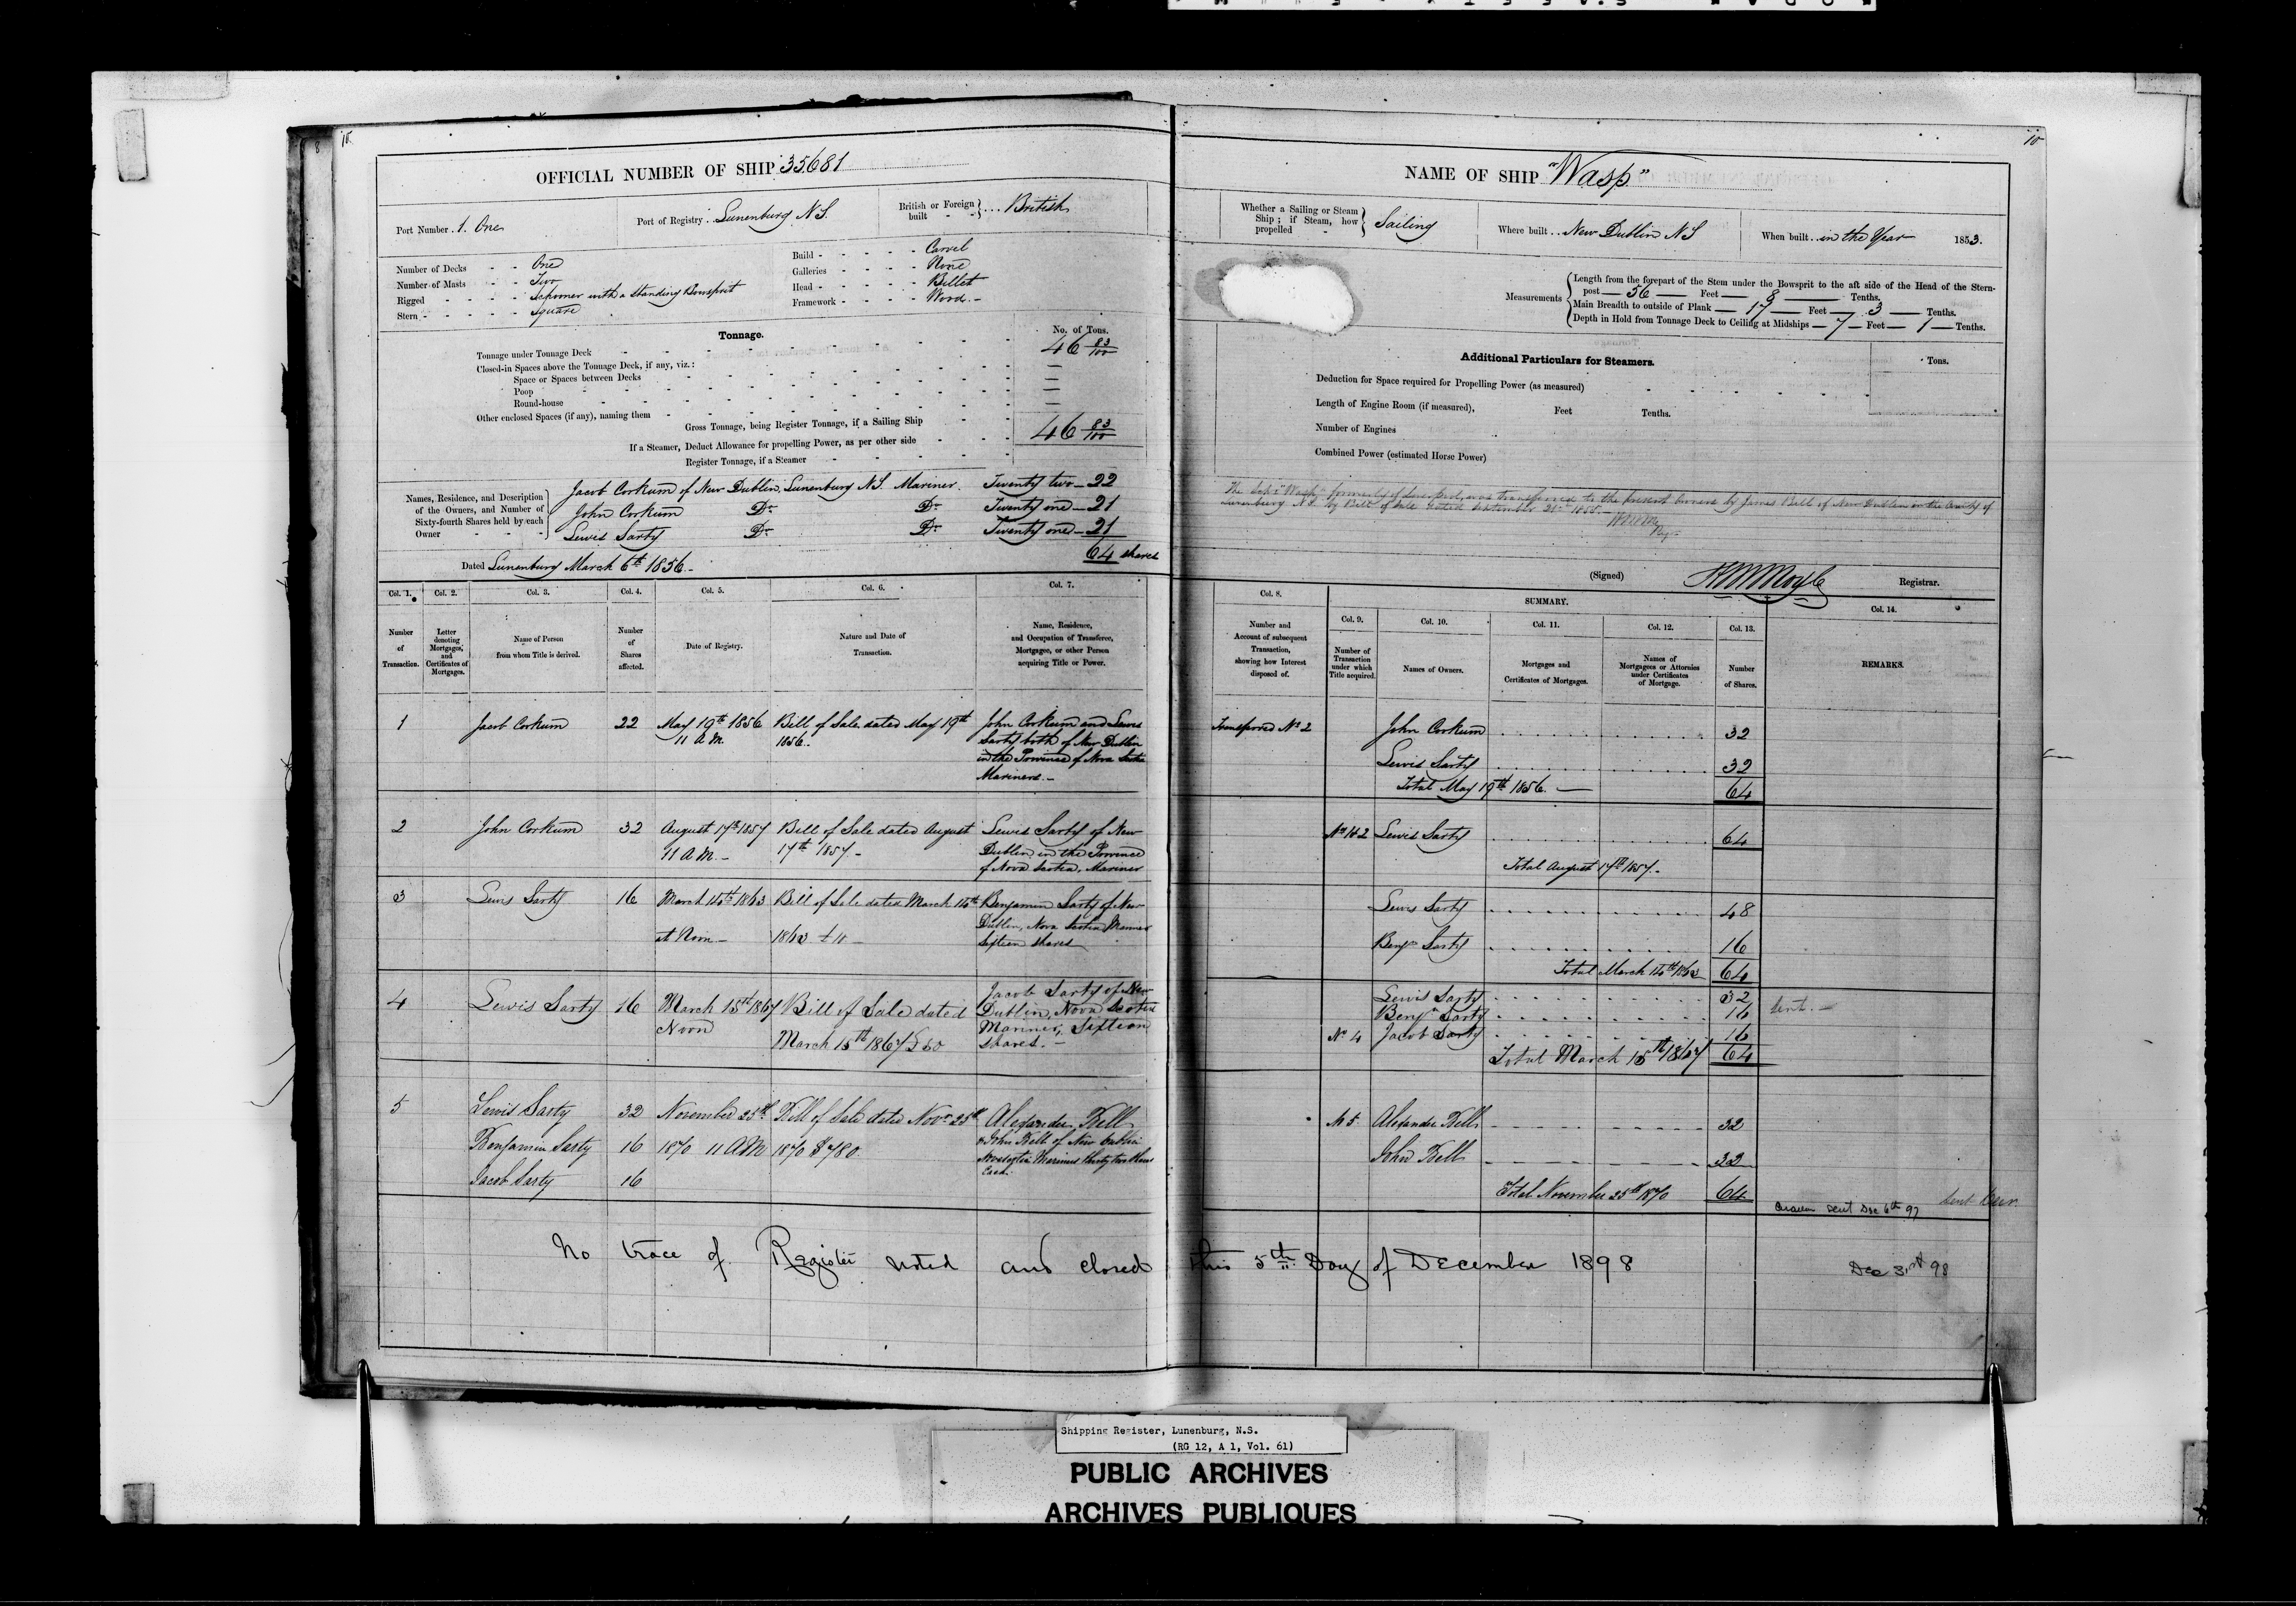 10.
OFFICIAL NUMBER OF SHIP 35681
Port Number . 1. One
Port of Registry . Lunenburg N.S.
British or Foreign built } ... British
Number of Decks - - One
Number of Masts - - Two
Rigged - - - - Schooner with a Standing Bowsprit
Stern - - - - - Square
Build - - - - - Carvel
Galleries - - - - None
Head - - - - - Billet
Framework - - - - Wood. -
Tonnage.
No. of Tons.
Tonnage under Tonnage Deck 46 83/100
Closed-in Spaces above the Tonnage Deck, if any, viz.:
Space or Spaces between Decks —
Poop —
Round-house —
Other enclosed Spaces (if any), naming them —
Gross Tonnage, being Register Tonnage, if a Sailing Ship 46 83/100
If a Steamer, Deduct Allowance for propelling Power, as per other side
Register Tonnage, if a Steamer
Names, Residence, and Description of the Owners, and Number of Sixty-fourth Shares held by each Owner
Jacob Corkum of New Dublin, Lunenburg N.S. Mariner. Twenty two - 22
John Corkum Do Do Twenty one - 21
Lewis Sarty Do Do Twenty one - 21
64 shares
Dated Lunenburg March 6th 1856. -
Col. 1. Col. 2. Col. 3. Col. 4. Col. 5. Col. 6. Col. 7.
Number of Transaction.
Letter denoting Mortgages, and Certificates of Mortgages.
Name of Person from whom Title is derived.
Number of Shares affected.
Date of Registry.
Nature and Date of Transaction.
Name, Residence, and Occupation of Transferee, Mortgagee, or other Person acquiring Title or Power.
1 Jacob Corkum 22 May 19th 1856 Bill of Sale dated May 19th John Corkum and Lewis
11 A.M. 1856. Sarty both of New Dublin
in the Province of Nova Scotia
Mariners. -
2 John Corkum 32 August 17th 1857 Bill of Sale dated August Lewis Sarty of New
11 A.M. - 17th 1857. - Dublin in the Province
of Nova Scotia, Mariner
3 Lewis Sarty 16 March 1863 Bill of Sale dated March Benjamin Sarty of New
at Noon - 1863 Dublin, Nova Scotia Mariner
Sixteen shares
4 Lewis Sarty 16 March 15th 1867 Bill of Sale dated Jacob Sarty of New
Noon March 15th 1867 £50 Dublin, Nova Scotia
Mariner, Sixteen
shares. -
5 Lewis Sarty 32 November 25th Bill of Sale dated Novr 25th Alexander Bell
Benjamin Sarty 16 1870 11 A M 1870 $780 John Bell of New Dublin
Jacob Sarty 16 Mariners thirty two shares
Each
10
NAME OF SHIP "Wasp"
Whether a Sailing or Steam Ship; if Steam, how propelled } Sailing
Where built . . New Dublin NS
When built . . in the Year 1853.
Measurements
Length from the forepart of the Stem under the Bowsprit to the aft side of the Head of the Stern-
post — 56 — Feet — 8 — Tenths.
Main Breadth to outside of Plank — 17 — Feet — 3 — Tenths.
Depth in Hold from Tonnage Deck to Ceiling at Midships — 7 — Feet — 1 — Tenths.
Additional Particulars for Steamers.
Tons.
Deduction for Space required for Propelling Power (as measured)
Length of Engine Room (if measured), Feet Tenths.
Number of Engines
Combined Power (estimated Horse Power)
The "Wasp" formerly of Liverpool, was transferred to the present Owners by James Bell of New Dublin in the County of
Lunenburg N.S. by Bill of Sale dated September 21st 1855. -
(Signed) Registrar.
Col. 8. SUMMARY. Col. 14.
Col. 9. Col. 10. Col. 11. Col. 12. Col. 13.
Number and Account of subsequent Transaction, showing how Interest disposed of.
Number of Transaction under which Title acquired.
Names of Owners.
Mortgages and Certificates of Mortgages.
Names of Mortgagees or Attornies under Certificates of Mortgage.
Number of Shares.
REMARKS.
Transferred No 2 John Corkum 32
Lewis Sarty 32
Total May 19th 1856. — 64
Lewis Sarty 64
Total August 17th 1857. -
Lewis Sarty 48
Benjn Sarty 16
Total March 64
Lewis Sarty 32 Sent. -
Benjn Sarty 16
No 4 Jacob Sarty 16
Total March 15th 1867 64
No 5 Alexander Bell 32
John Bell 32
Total November 25th 1870 64
sent Dec 6th 97
No trace of Register noted and closed this 5th Day of December 1898
Shipping Register, Lunenburg, N.S.
(RG 12, A 1, Vol. 61)
PUBLIC ARCHIVES
ARCHIVES PUBLIQUES